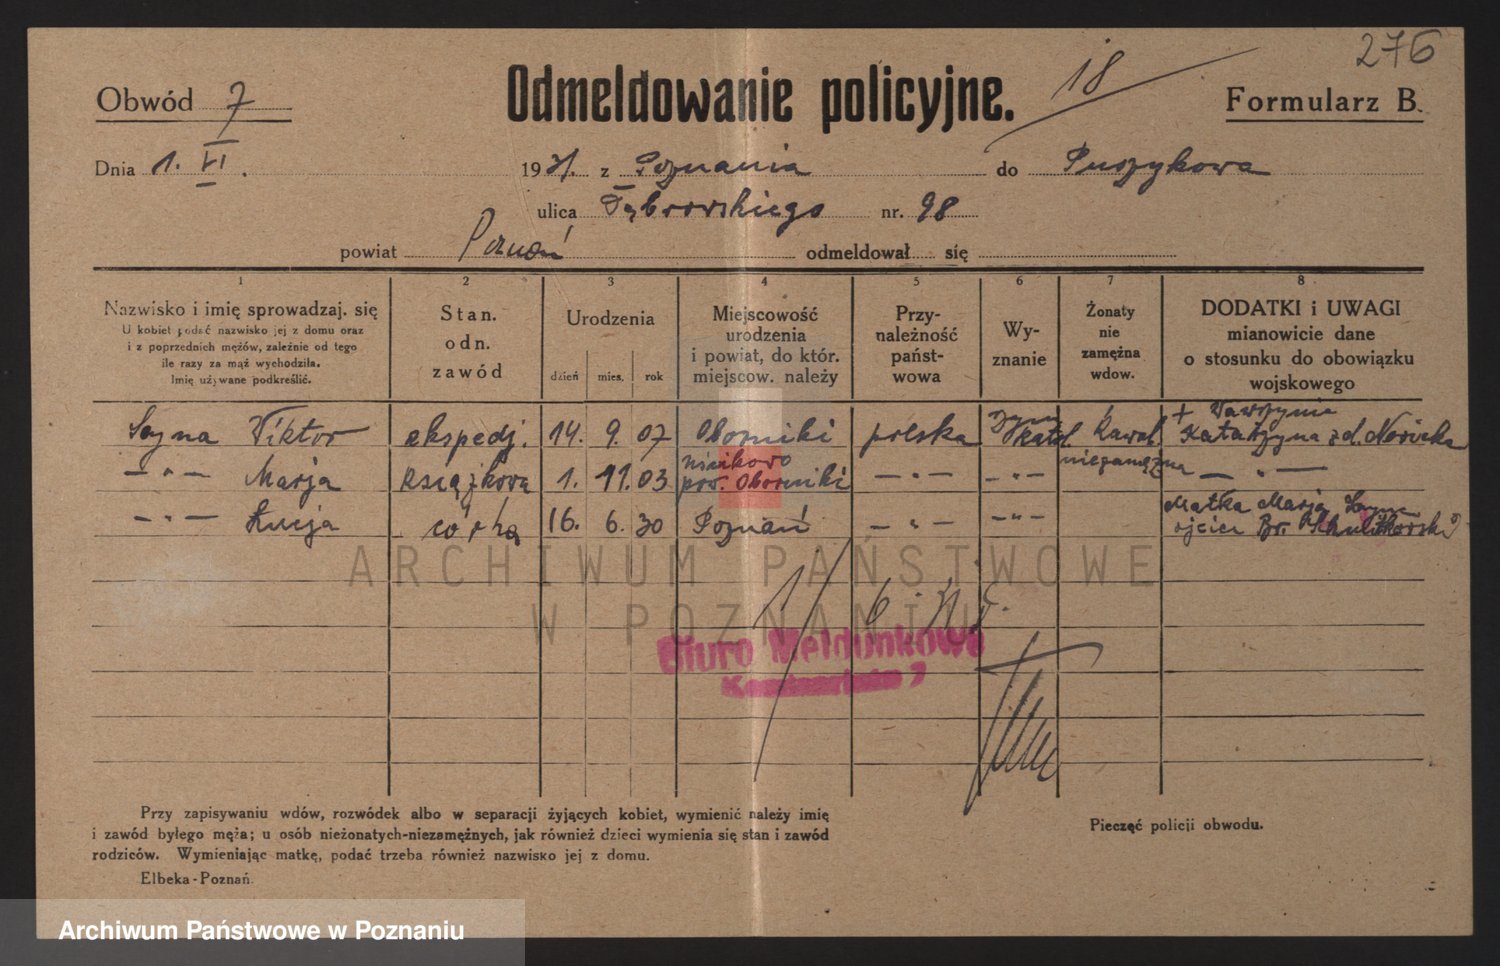 276
Odmeldowanie policyjne.
18
Obwód 7
Formularz B.
Dnia 1. VI. 1931. z Poznania do Puszykowa
ulica Dąbrowskiego nr. 98
powiat Poznań odmeldował się
1 2 3 4 5 6 7 8
Nazwisko i imię sprowadzaj. się
U kobiet podać nazwisko jej z domu oraz
i z poprzednich mężów, zależnie od tego
ile razy za mąż wychodziła.
Imię używane podkreślić.
Stan.
odn.
zawód
Urodzenia
dzień mies. rok
Miejscowość
urodzenia
i powiat, do któr.
miejscow. należy
Przy-
należność
państ-
wowa
Wy-
znanie
Żonaty
nie
zamężna
wdow.
DODATKI i UWAGI
mianowicie dane
o stosunku do obowiązku
wojskowego
Wiktor ekspedj. 14. 9. 07 Oborniki polska rzym katol kawal + Wawrzynie
Katarzyna z d. Nowicka
— " — Marja książkowa 1. 11. 03 pow. Oborniki — " — — " — niezamężna — " —
— " — Łucja córka 16. 6. 30 Poznań — " — — " — Matka Marja
ojciec Br.
ARCHIWUM PAŃSTWOWE
W POZNANIU
Biuro Meldunkowe
Komisariatu 7
Przy zapisywaniu wdów, rozwódek albo w separacji żyjących kobiet, wymienić należy imię
i zawód byłego męża; u osób nieżonatych-niezamężnych, jak również dzieci wymienia się stan i zawód
rodziców. Wymieniając matkę, podać trzeba również nazwisko jej z domu.
Pieczęć policji obwodu.
Elbeka-Poznań.
Archiwum Państwowe w Poznaniu